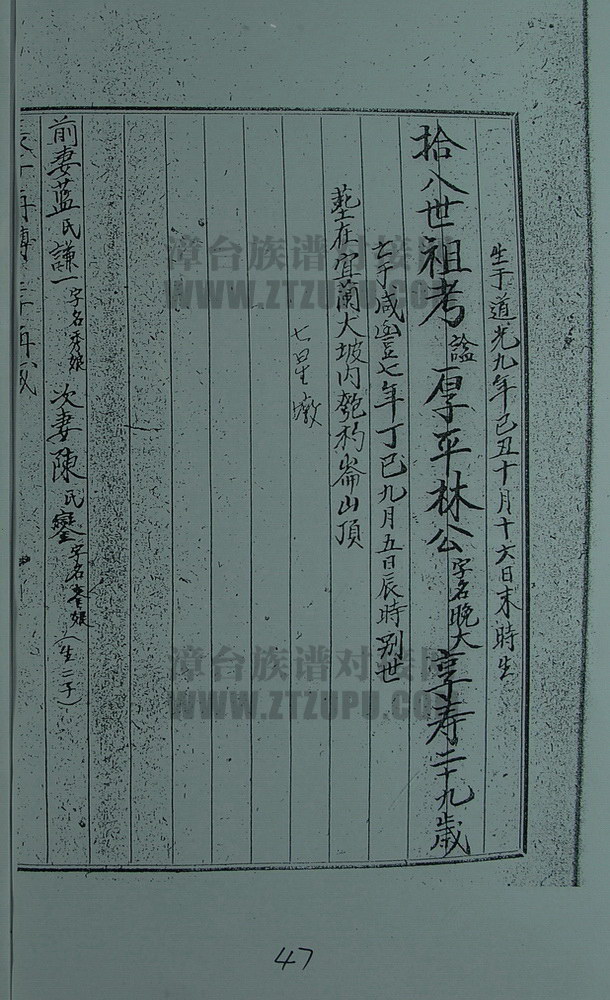 生于道光九年己丑十月十六日未時生
拾八世祖考謚厚平林公字名晚大享寿二十九歲
亡于咸豐七年丁巳九月五日辰時別世
塟在宜蘭大坡內匏杓崙山頂
七星墩
前妻蓝氏謙一字名秀娘 次妻陳氏 字名 娘（生二子）
漳台族谱对接网
WWW.ZTZUPU.COM
漳台族谱对接网
WWW.ZTZUPU.COM
47